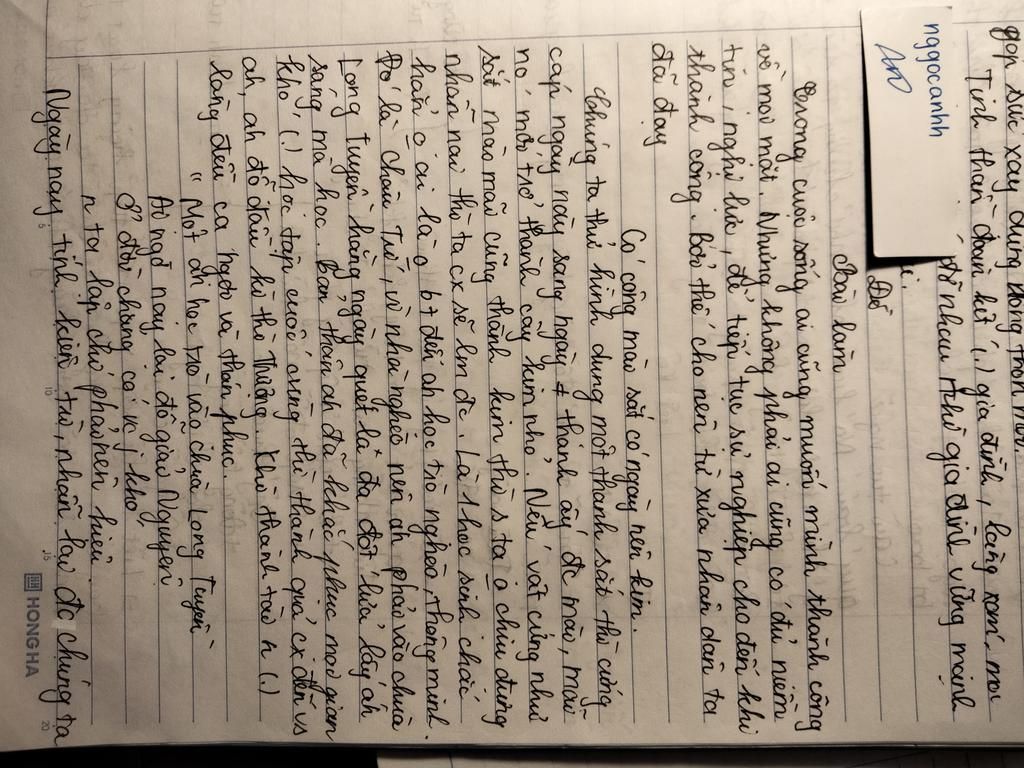 góp sức xay dựng nông thôn mới.
Tinh thần đoàn kết (.) gia đình, làng xóm, mọi
đỡ nhau thì gia đình vững mạnh
ngocanhh
Đề
Bài làm
Trong cuộc sống ai cũng muốn mình thành công
về mọi mặt. Nhưng không phải ai cũng có đủ niềm
tin, nghị lực, để tiếp tục sự nghiệp cho đến khi
thành công. Bởi thế cho nên từ xưa nhân dân ta
đã dạy
Có công mài sắt có ngày nên kim.
Chúng ta thử hình dung một thanh sắt thì cứng
cáp ngày này sang ngày # thành ấy đc mài, mãi
nó mới trở thành cây kim nhỏ. Nếu vật cứng như
sắt mài mãi cũng thành kim thì s ta o chịu đựng
nhẫn nại thì ta cx sẽ lm đc. Là 1 học sinh chắc
hẳn o ai là o bt đến ah học trò nghèo, thông minh.
Đó là Châu Trí, vì nhà nghèo nên ah phải vào chùa
Long Tuyền hằng ngày quét lá đa đốt lửa lấy ánh
sáng mà học. Bản thân ah đã khắc phục mọi gian
khó (.) học tập cuối cùng thì thành quả cx đến vs
ah, ah đỗ đầu kì thi Hương. Khi thành tài n (.)
làng đều ca ngợi và thán phục.
" Một đi học trò vào chùa Long Tuyền
Ai ngờ nay lại đỗ giải Nguyên
Ở đời chẳng có vc j khó
n ta lập chí phải nên kiên.
Ngày nay tính kiên trì, nhẫn lại đc chúng ta
5
10
15
20
HONG HA